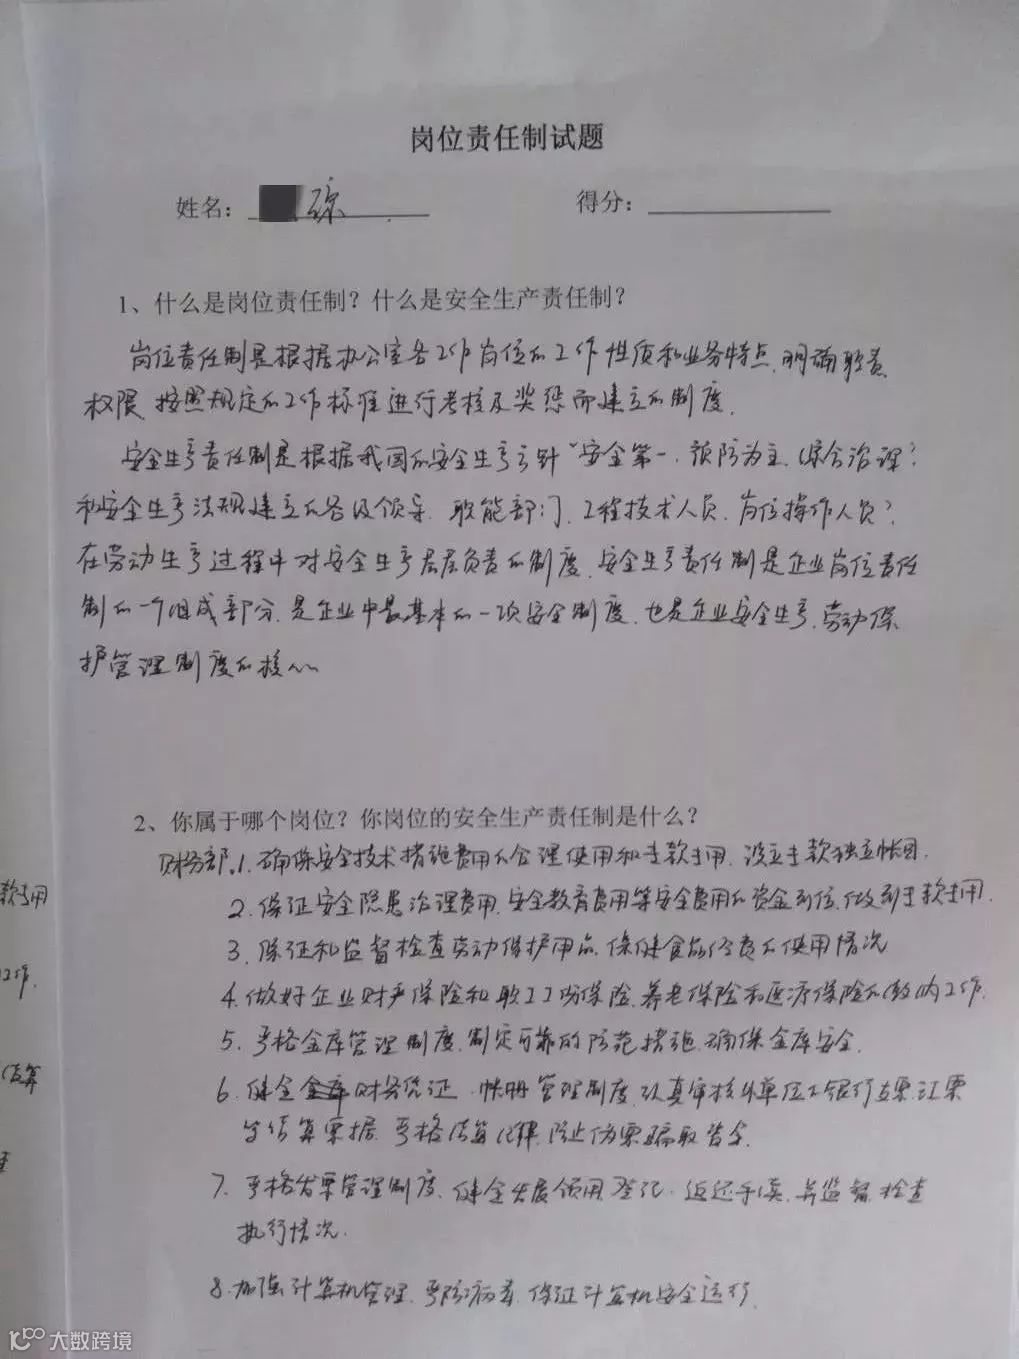 岗位责任制试题
姓名： 琼 得分：
1、什么是岗位责任制？什么是安全生产责任制？
岗位责任制是根据办公室各工作岗位的工作性质和业务特点，明确职责
权限，按照规定的工作标准进行考核及奖惩而建立的制度。
安全生产责任制是根据我国的安全生产方针“安全第一，预防为主，综合治理”
和安全生产法规建立的各级领导、职能部门、工程技术人员、岗位操作人员，
在劳动生产过程中对安全生产层层负责的制度。安全生产责任制是企业岗位责任
制的一个组成部分，是企业中最基本的一项安全制度，也是企业安全生产，劳动保
护管理制度的核心
2、你属于哪个岗位？你岗位的安全生产责任制是什么？
财务部：1.确保安全技术措施费用的合理使用和专款专用，设立专款独立帐目.
2.保证安全隐患治理费用，安全教育费用等安全费用的资金到位，做到专款专用.
3.保证和监督检查劳动保护用品，保健食品经费的使用情况
4.做好企业财产保险和职工工伤保险，养老保险和医疗保险的缴纳工作.
5.严格金库管理制度，制定可靠的防范措施，确保金库安全.
6.健全财务凭证，帐册管理制度，认真审核外单位银行支票，汇票
等结算票据，严格结算纪律，防止伪票骗取资金.
7.严格发票管理制度，健全发票领用登记，返还手续，并监督检查
执行情况.
8.加强计算机管理，严防病毒，保证计算机安全运行.
款专用
工作.
结算
大数跨境